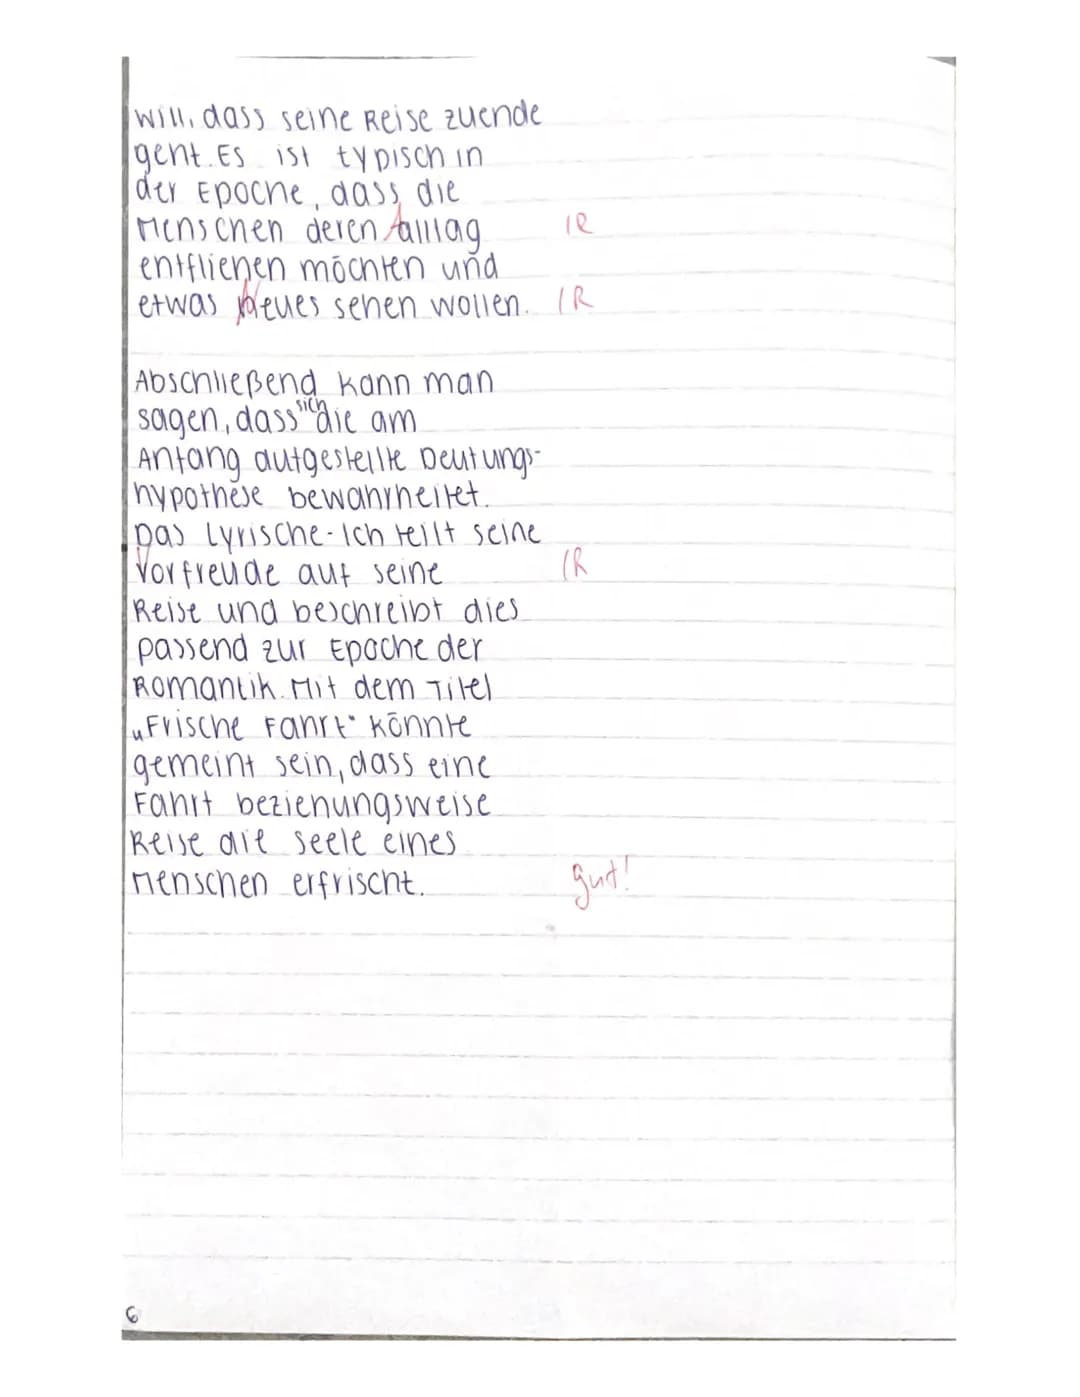 will, dass seine Reise zuende
geht. Es ist typisch in
der Epoche, dass die
Menschen deren Alltag IR
entfliehen möchten und
etwas Neues sehen wollen. IR
Abschließend kann man
sagen, dass sich die am
Anfang aufgestellte Deutungs-
hypothese bewahrheitet.
Das Lyrische-Ich teilt seine
Vorfreude auf seine IR
Reise und beschreibt dies
passend zur Epoche der
Romantik. Mit dem Titel
„Frische Fahrt" könnte
gemeint sein, dass eine
Fahrt beziehungsweise
Reise die Seele eines
Menschen erfrischt. gut!
6